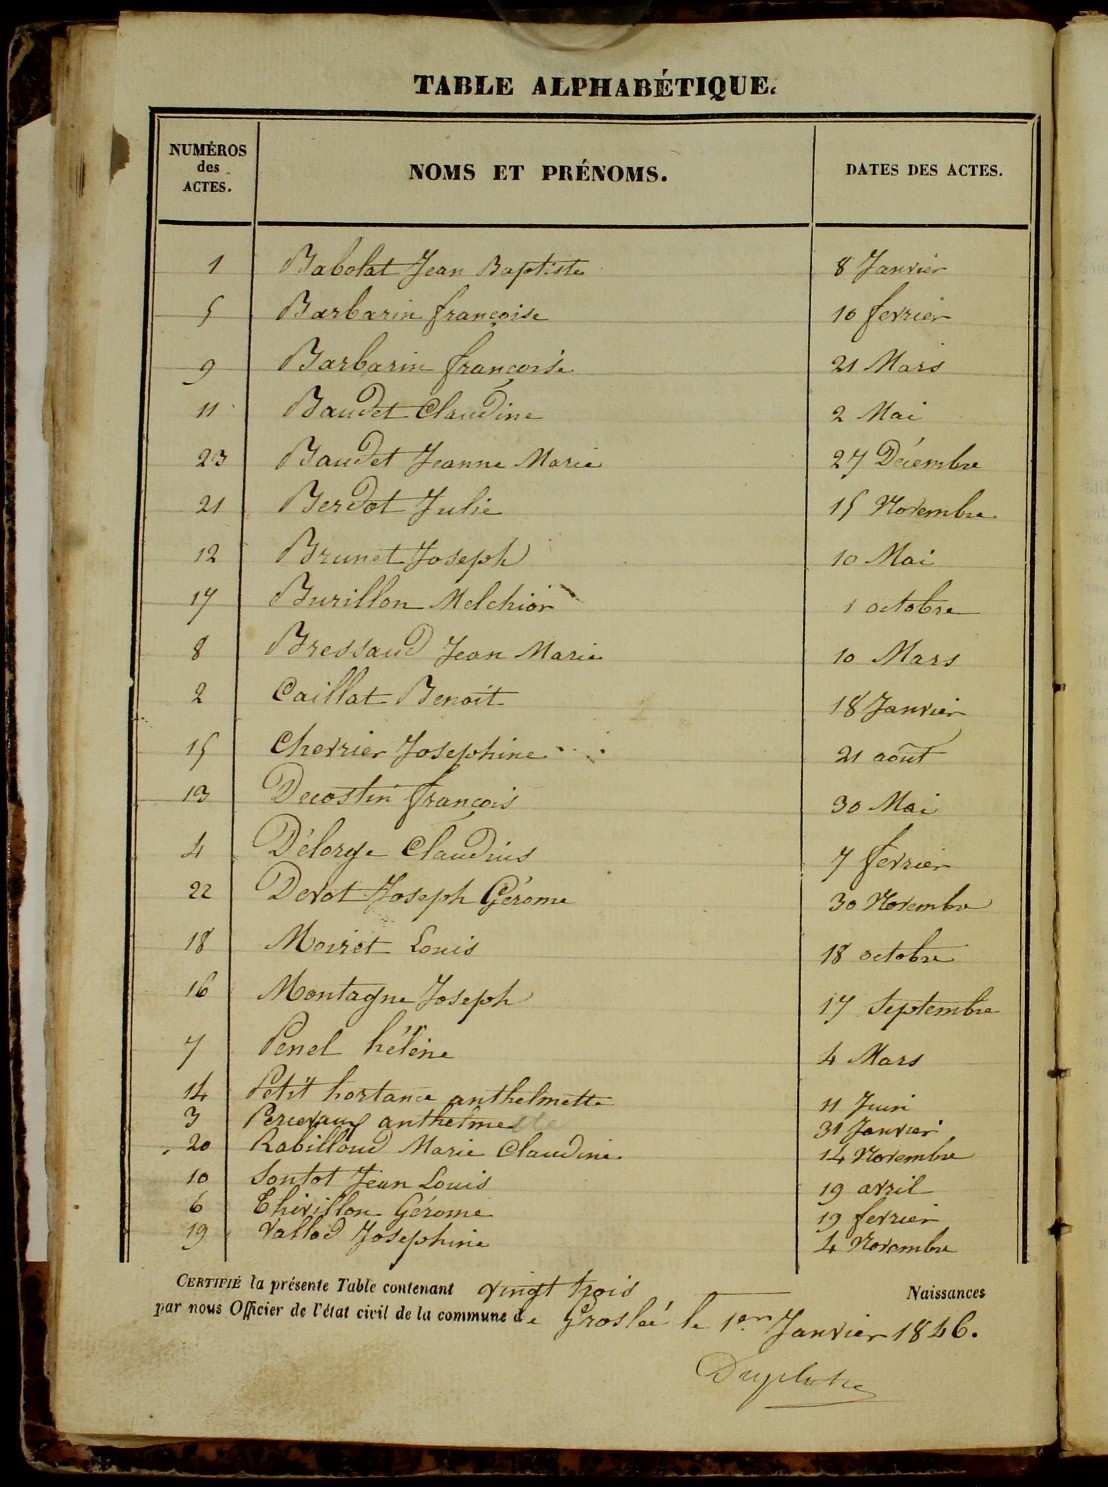 TABLE ALPHABÉTIQUE.
NUMÉROS des ACTES. NOMS ET PRÉNOMS. DATES DES ACTES.
1 Babolat Jean Baptiste 8 Janvier
5 Barbarin françoise 10 fevrier
9 Barbarin françoise 21 Mars
11 Baudet Claudine 2 Mai
23 Baudet Jeanne Marie 27 Décembre
21 Berdot Julie 15 Novembre
12 Brunet Joseph 10 Mai
17 Burillon Melchior 1 octobre
8 Bressaud Jean Marie 10 Mars
2 Caillat Benoit 18 Janvier
15 Chevrier Josephine 21 août
13 Decostin françois 30 Mai
4 Délorge Claudius 7 fevrier
22 Devot Joseph Gérome 30 Novembre
18 Moiret Louis 18 octobre
16 Montagne Joseph 17 Septembre
7 Penel hélène 4 Mars
14 Petit hortance anthelmette 11 Juin
3 anthelme 31 Janvier
20 Rabilloud Marie Claudine 14 Novembre
10 Sontot Jean Louis 19 avril
6 Thivillon Gérome 19 fevrier
19 Vallod Josephine 4 Novembre
CERTIFIÉ la présente Table contenant vingt trois Naissances
par nous Officier de l'état civil de la commune de Groslée le 1er Janvier 1846.